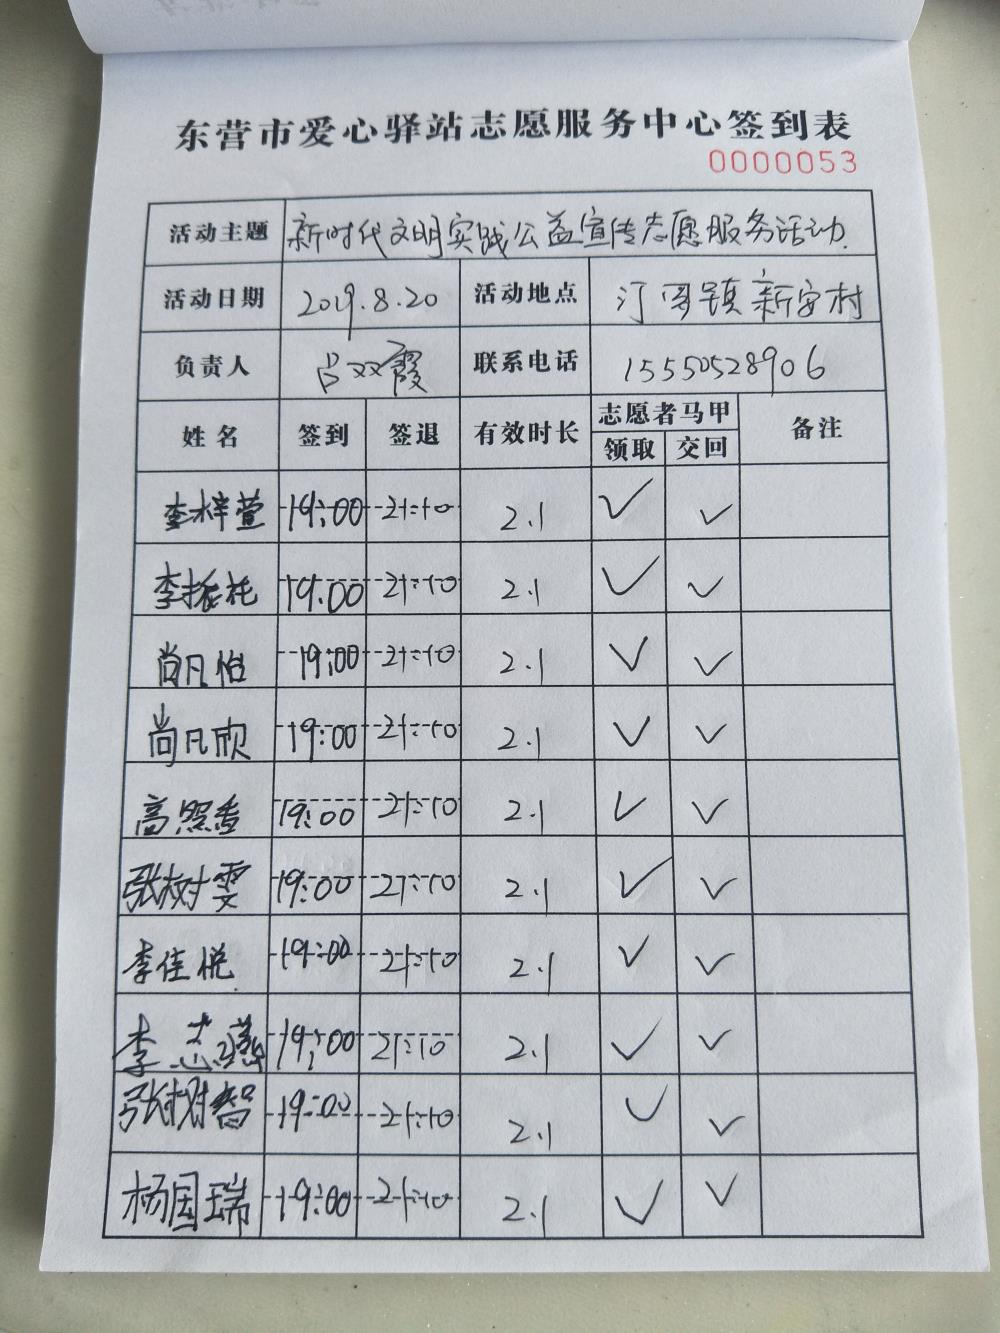 东营市爱心驿站志愿服务中心签到表
0000053
活动主题 新时代文明实践公益宣传志愿服务活动
活动日期 2019.8.20 活动地点 汀罗镇新安村
负责人 吕双霞 联系电话 15550528906
姓名 签到 签退 有效时长 志愿者马甲 领取 交回 备注
李梓萱 19:00 21:10 2.1 ✓ ✓
李振 19:00 21:10 2.1 ✓ ✓
尚凡怡 19:00 21:10 2.1 ✓ ✓
尚凡欣 19:00 21:10 2.1 ✓ ✓
高熙 19:00 21:10 2.1 ✓ ✓
张树雯 19:00 21:10 2.1 ✓ ✓
李佳悦 19:00 21:10 2.1 ✓ ✓
李 19:00 21:10 2.1 ✓ ✓
张树智 19:00 21:10 2.1 ✓ ✓
杨国瑞 19:00 21:10 2.1 ✓ ✓